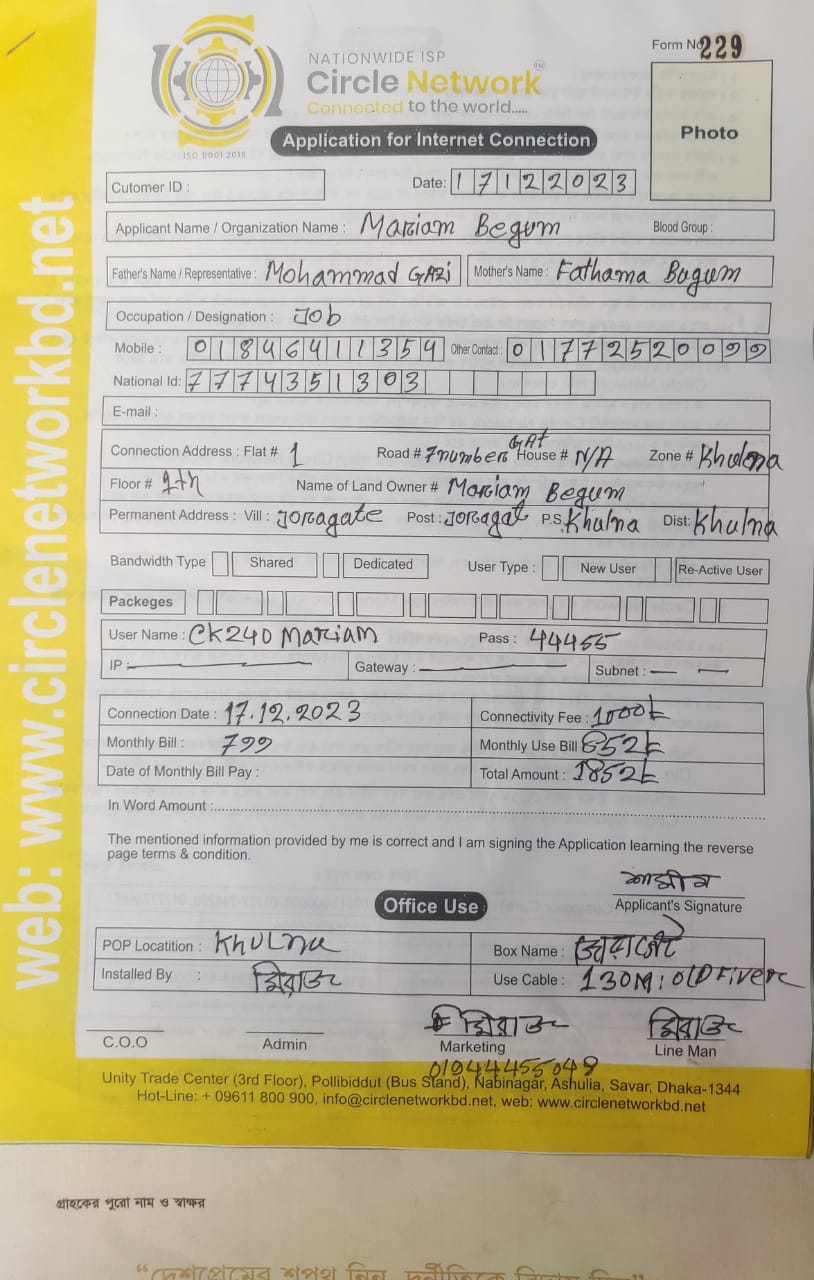 Form No 229
NATIONWIDE ISP
Circle Network
Connected to the world.....
ISO 9001:2015
Application for Internet Connection
Photo
Cutomer ID :
Date: 17122023
Applicant Name / Organization Name : Mariam Begum Blood Group :
Father's Name / Representative : Mohammad GAZi Mother's Name : Fathama Bugum
Occupation / Designation : Job
Mobile : 01846411354 Other Contact : 01772520099
National Id: 7774351303
E-mail :
Connection Address : Flat # 1 Road # 7number GAt House # N/A Zone # Khulna
Floor # 1th Name of Land Owner # Mariam Begum
Permanent Address : Vill : Joragate Post : Joragat P.S. Khulna Dist: Khulna
Bandwidth Type Shared Dedicated User Type : New User Re-Active User
Packeges
User Name : CK240 Mariam Pass : 44455
IP : Gateway : Subnet :
Connection Date : 17.12.2023 Connectivity Fee : 1000
Monthly Bill : 799 Monthly Use Bill 852
Date of Monthly Bill Pay : Total Amount : 1852
In Word Amount :
The mentioned information provided by me is correct and I am signing the Application learning the reverse
page terms & condition.
Applicant's Signature
Office Use
POP Locatition : Khulna Box Name : জোড়াগেট
Installed By : মিরাজ Use Cable : 130M: OLD Fiver
মিরাজ মিরাজ
C.O.O Admin Marketing Line Man
01944455048
Unity Trade Center (3rd Floor), Pollibiddut (Bus Stand), Nabinagar, Ashulia, Savar, Dhaka-1344
Hot-Line: + 09611 800 900, info@circlenetworkbd.net, web: www.circlenetworkbd.net
web: www.circlenetworkbd.net
গ্রাহকের পুরো নাম ও স্বাক্ষর
“দেশপ্রেমের শপথ নিন, দুর্নীতিকে বিদায় দিন”